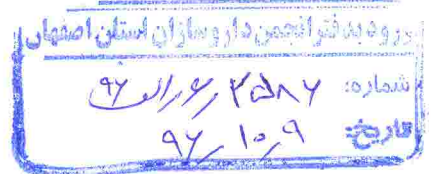 ورود به دفتر انجمن داروسازان استان اصفهان
شماره: ۲۵۸۷/ر/الف/۹۶
تاریخ: ۹۶/۱۰/۹